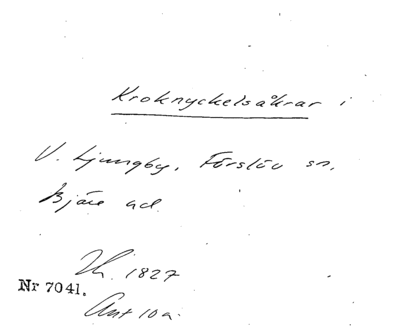 Kroknyckelsåkrar i
V. Ljungby, Förslöv sn,
Bjäre hd
1827
Nr 7041.
Ant 10 a.